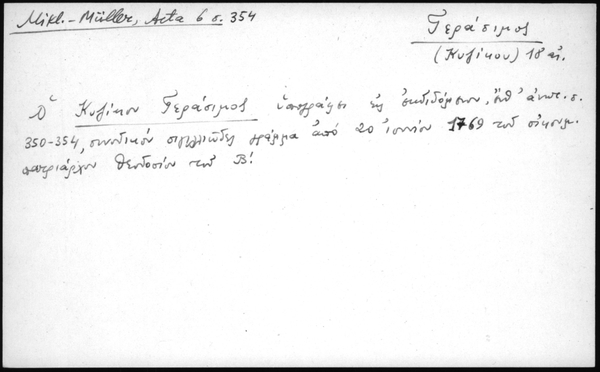 Mikl.-Müller, Acta 6 σ. 354
Γεράσιμος
(Κυζίκου) 18 αἰ.
Ὁ Κυζίκου Γεράσιμος ὑπογράφει εἰς ἐκδιδόμενον, ἔνθ' ἀνωτ. σ.
350-354, συνοδικόν σιγιλλιῶδες γράμμα ἀπό 20 ἰουνίου 1769 τοῦ οἰκουμ.
πατριάρχου Θεοδοσίου τοῦ Β!